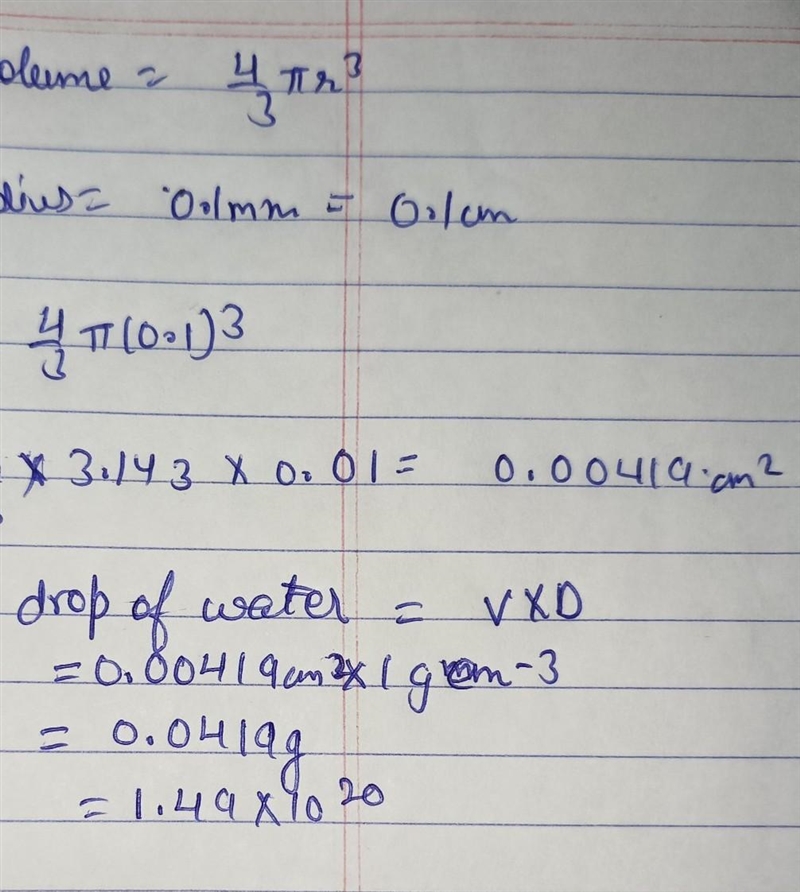 olume = 4/3 πr³
dius = 0.1mm = 0.1cm
4/3 π(0.1)³
x 3.143 x 0.01 = 0.00419.cm²
drop of water = V X D
= 0.00419cm² x 1 g cm-3
= 0.0419g
= 1.49 x 10²⁰